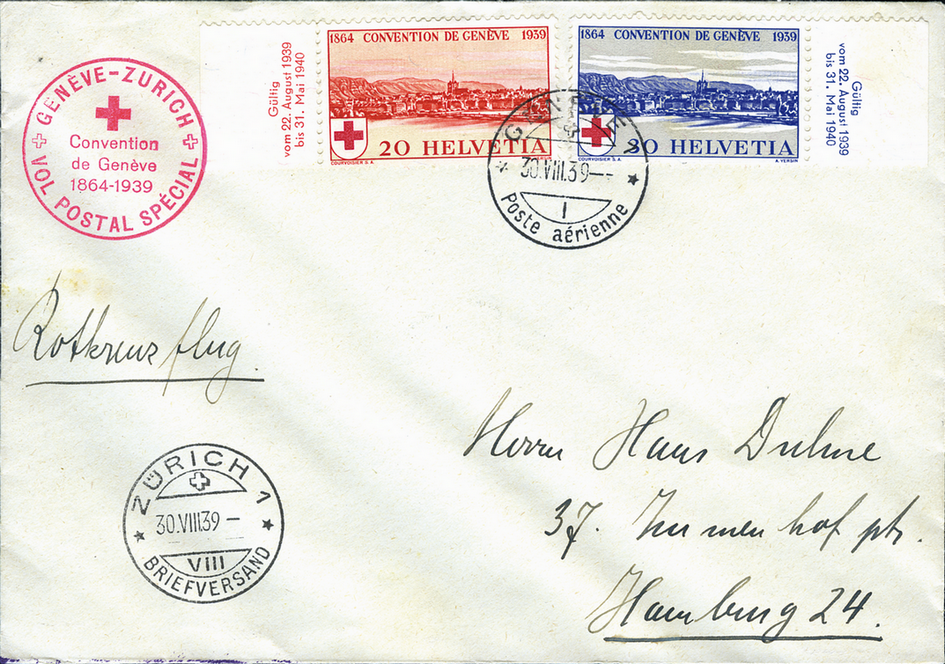 GENÈVE-ZURICH
Convention
de Genève
1864-1939
VOL POSTAL SPÉCIAL
Gültig
vom 22. August 1939
bis 31. Mai 1940
1864 CONVENTION DE GENÈVE 1939
20 HELVETIA
COURVOISIER S.A.
1864 CONVENTION DE GENÈVE 1939
30 HELVETIA
COURVOISIER S.A.
A. YERSIN
Gültig
vom 22. August 1939
bis 31. Mai 1940
GENÈVE 1
30.VIII.39--
1
Poste aérienne
Rotkreuzflug.
Herrn Hans Duhme
37. Immenhof ptr.
Hamburg 24.
ZÜRICH 1
30.VIII.39 –
VIII
BRIEFVERSAND